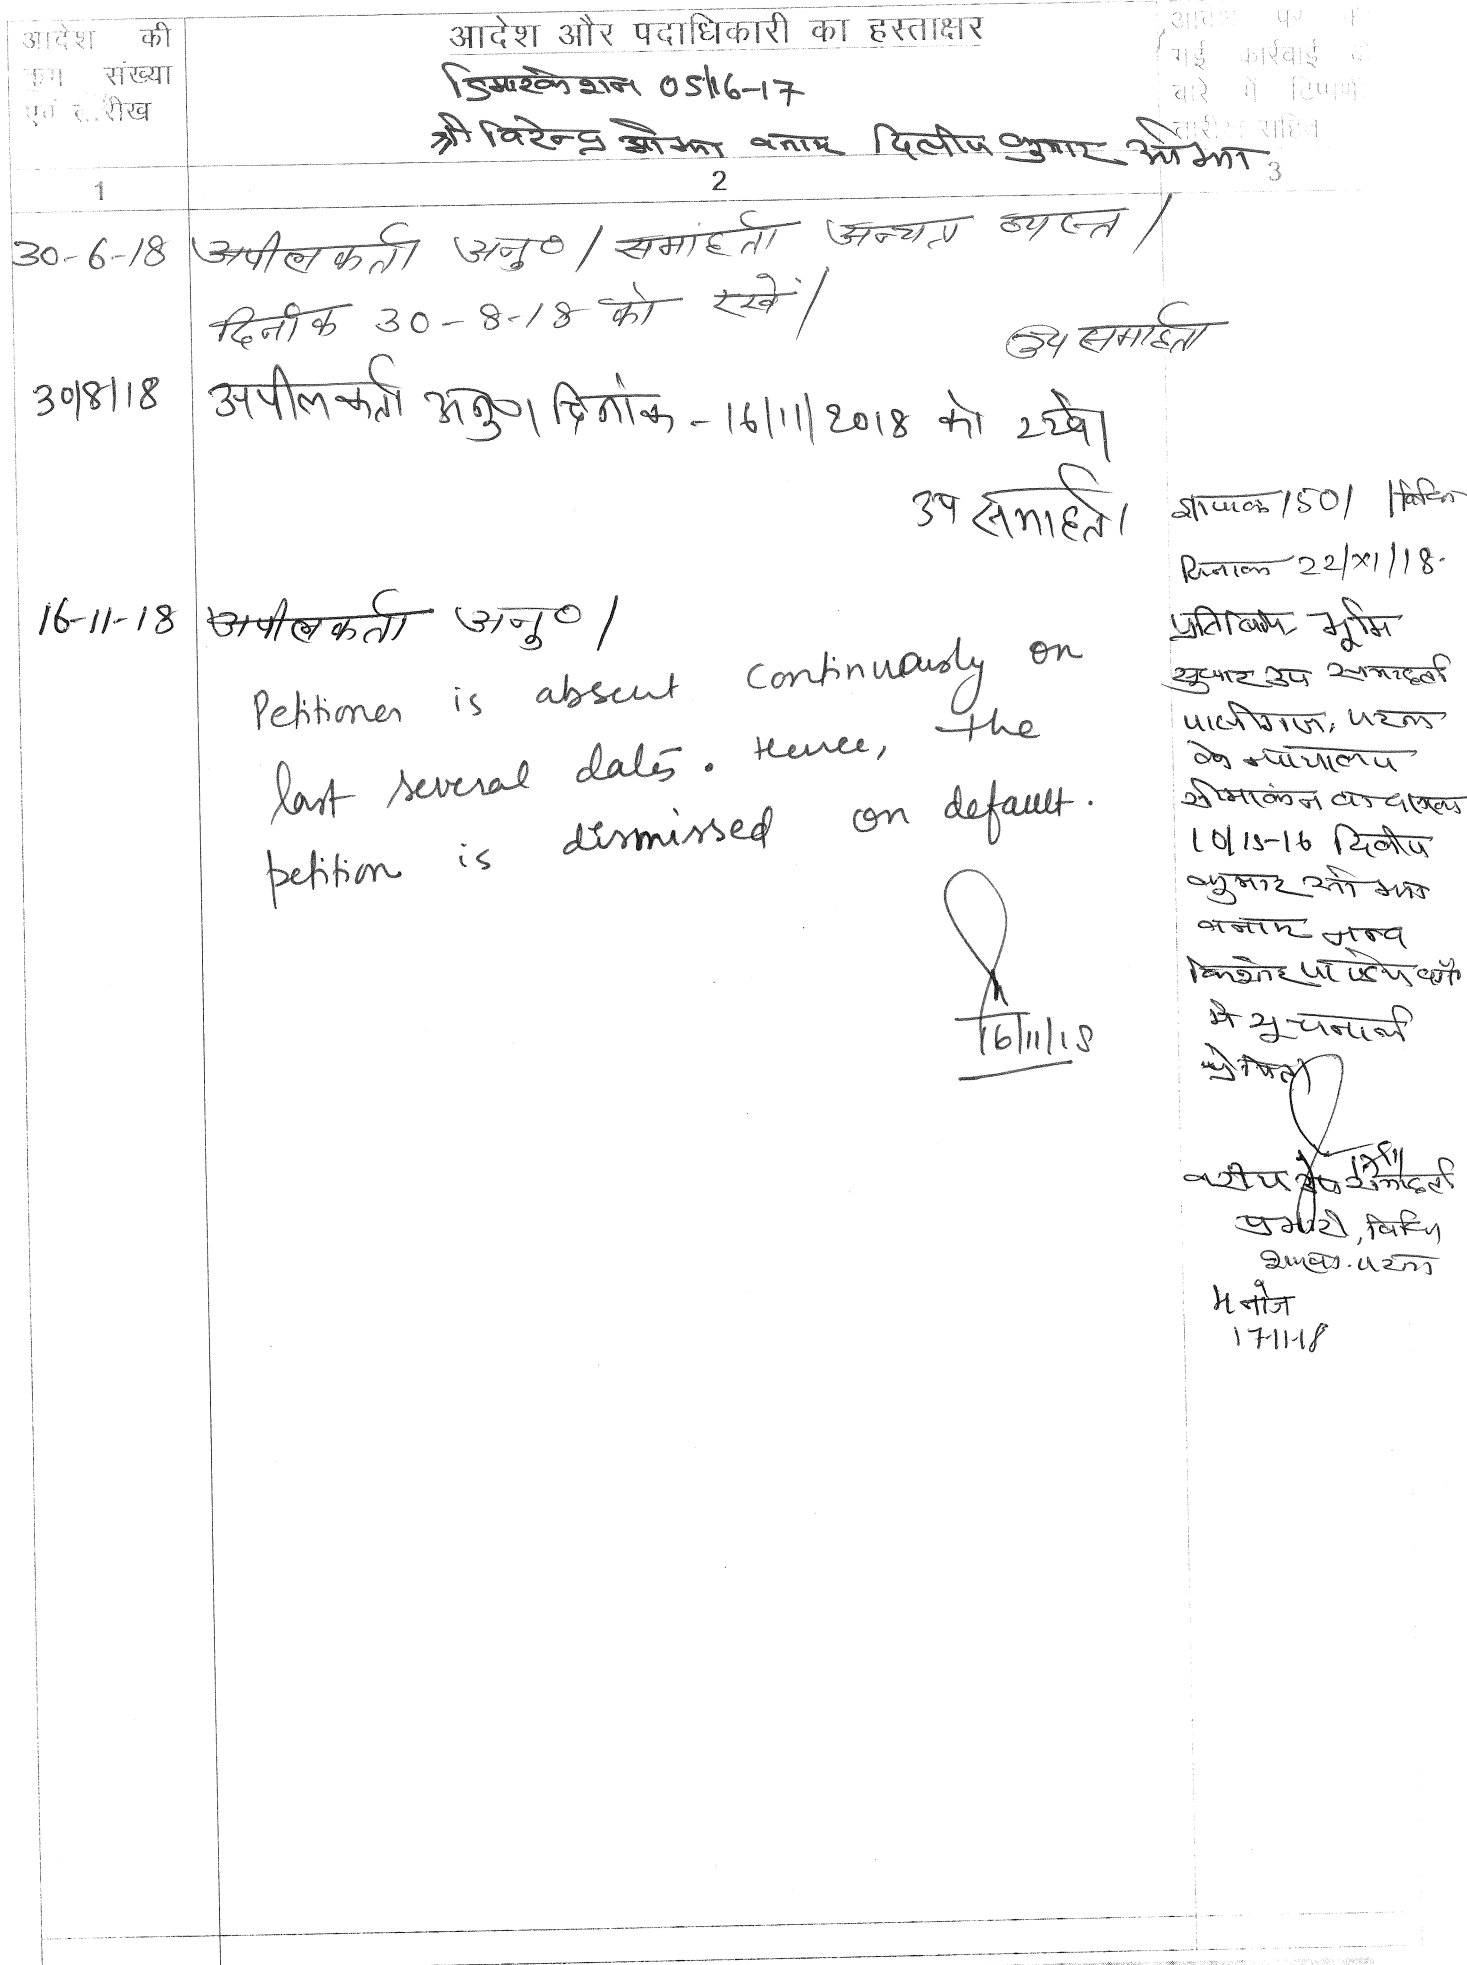 आदेश की
क्रम संख्या
एवं तारीख
आदेश और पदाधिकारी का हस्ताक्षर
आदेश पर की
गई कार्रवाई के
बारे में टिप्पणी
तारीख सहित
डिमारकेशन 05/16-17
श्री विरेन्द्र ओझा बनाम दिलीप कुमार ओझा
1
2
3
30-6-18 अपीलकर्ता अनु०/ समाहर्ता अन्यत्र व्यस्त/
दिनांक 30-8-18 को रखें/
उप समाहर्ता
30/8/18 अपीलकर्ता अनु०। दिनांक - 16/11/2018 को रखें।
उप समाहर्ता
16-11-18 अपीलकर्ता अनु०/
Petitioner is absent continuously on
last several dates. Hence, the
petition is dismissed on default.
16/11/18
ज्ञापांक 1501 / विधि
दिनांक 22/XI/18.
प्रतिलिपि भूमि
सुधार उप समाहर्ता
पालीगंज, पटना
के न्यायालय
सीमांकन वाद संख्या
10/15-16 दिलीप
कुमार ओझा
बनाम
किशोर पाण्डेय
में सूचनार्थ
प्रेषित।
17/11
वरीय उप समाहर्ता
प्रभारी, विधि
शाखा. पटना
मनोज
17-11-18